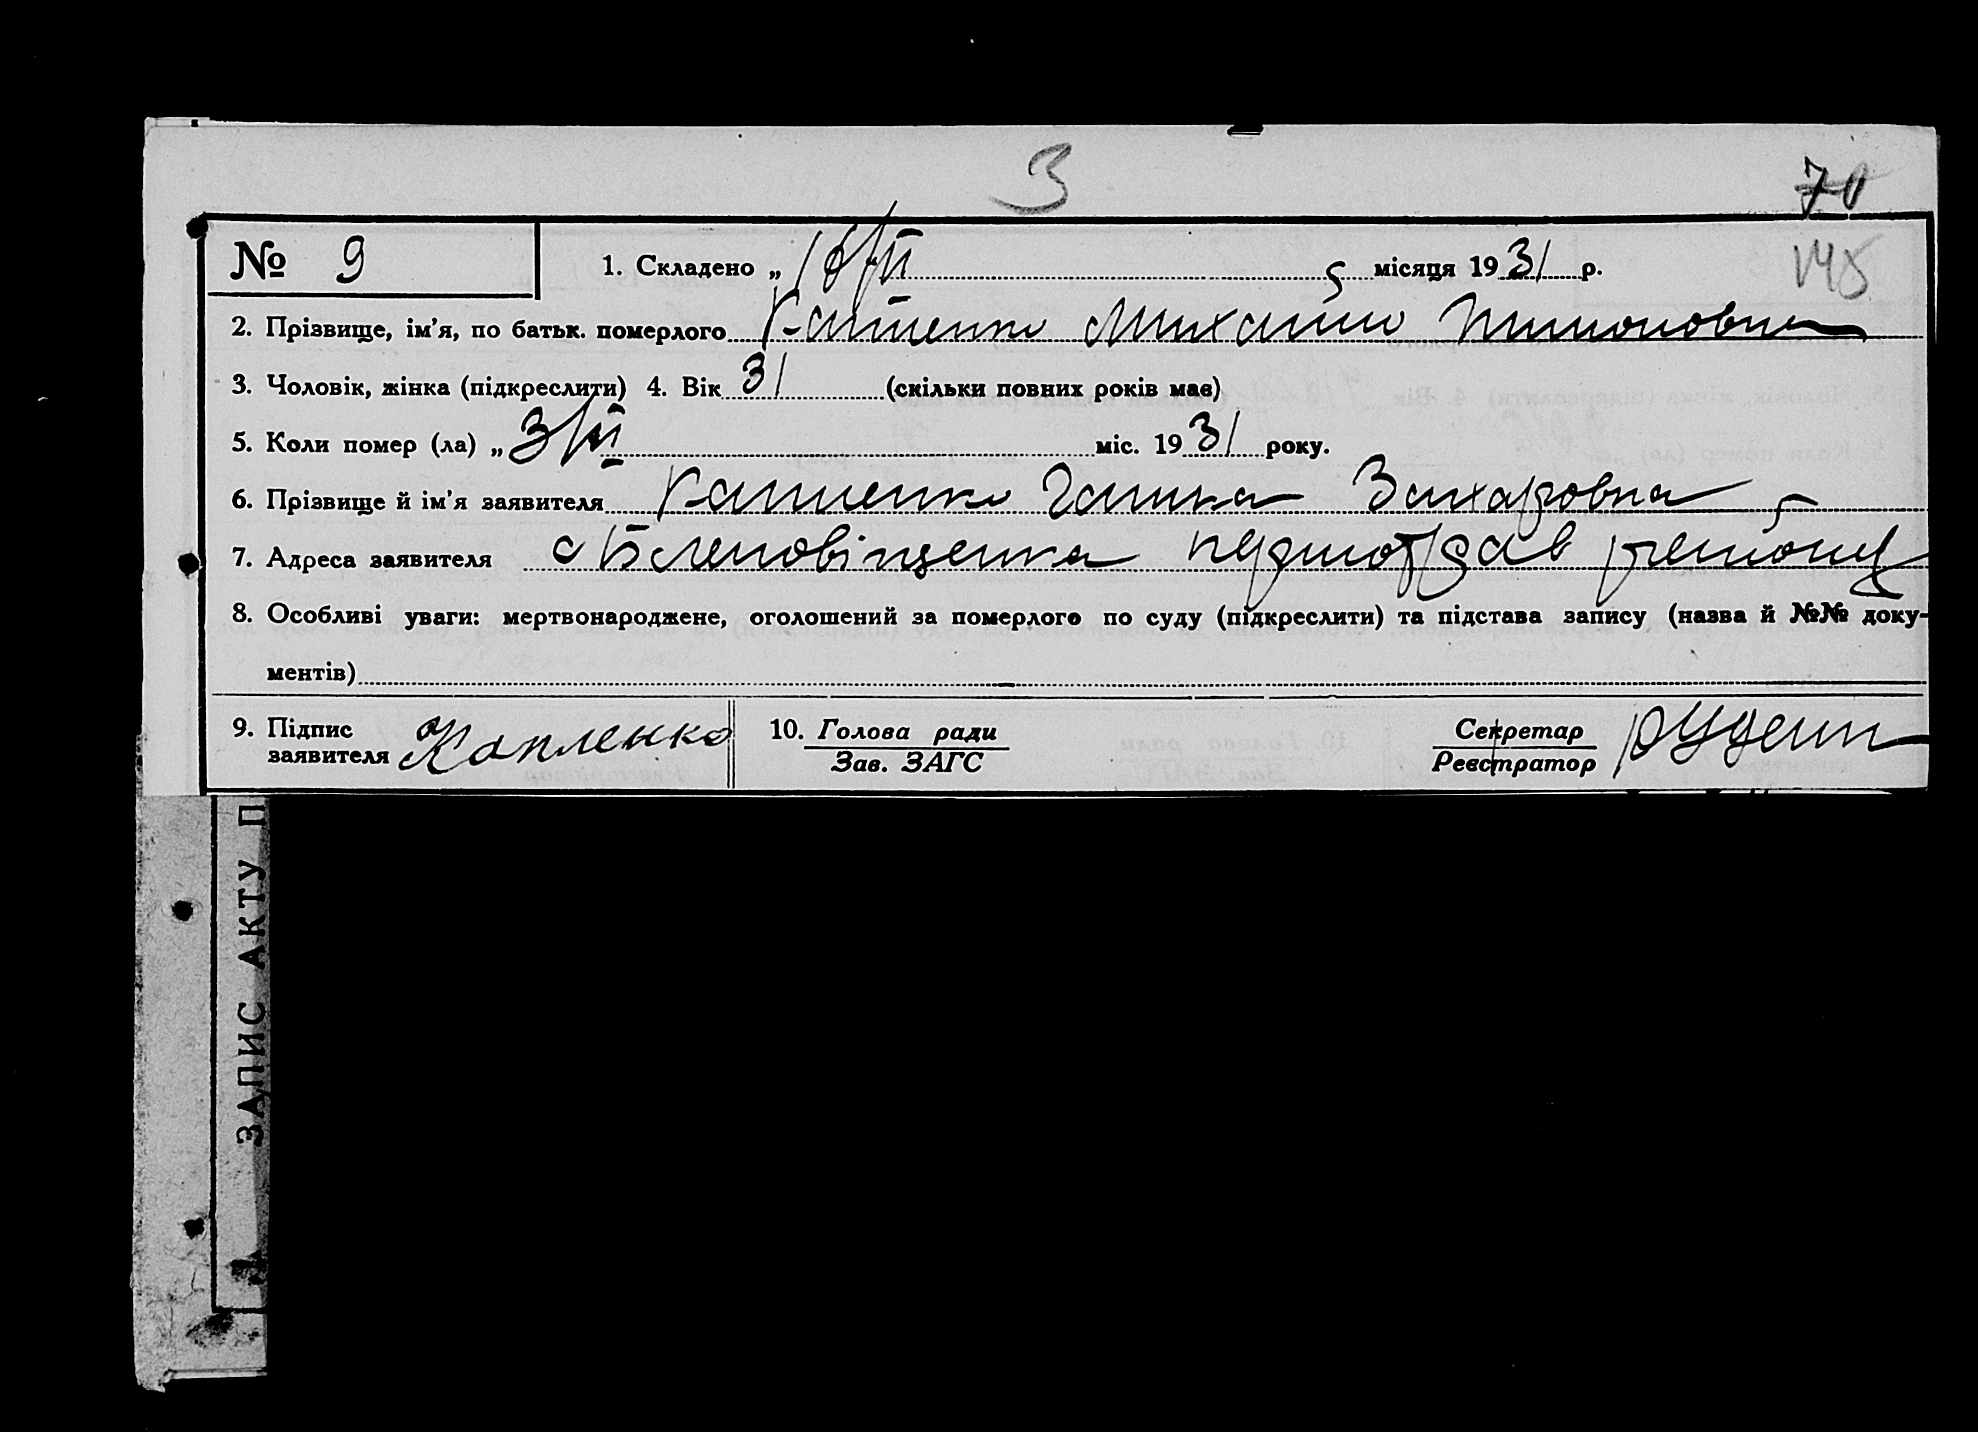 3
70
145
№ 9 1. Складено „ 16/II місяця 1931 р.
2. Прізвище, ім'я, по батьк. померлого Капленко Михайло
3. Чоловік, жінка (підкреслити) 4. Вік 31 (скільки повних років має)
5. Коли помер (ла) „ 3/II міс. 1931 року.
6. Прізвище й ім'я заявителя Капленко Ганна Захаровна
7. Адреса заявителя с
8. Особливі уваги: мертвонароджене, оголошений за померлого по суду (підкреслити) та підстава запису (назва й №№ доку-
ментів)
9. Підпис заявителя Капленко 10. Голова ради Зав. ЗАГС Секретар Реєстратор
ЗАПИС АКТУ П